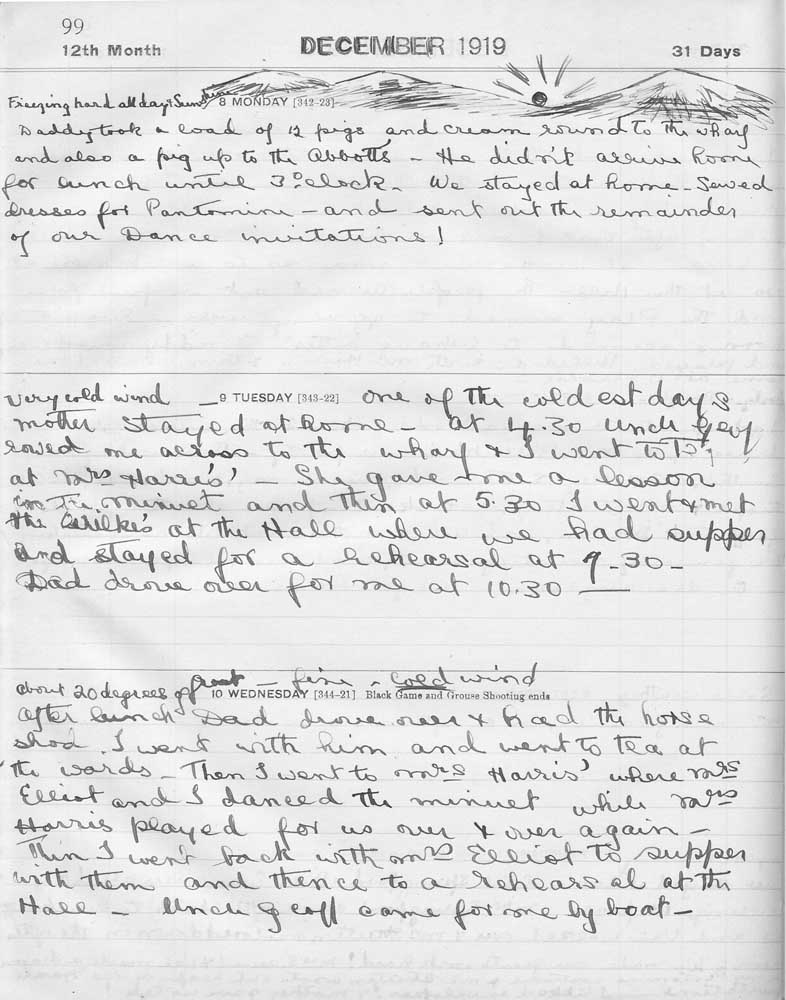 99
12th Month DECEMBER 1919 31 Days
Freezing hard all day & Sunshine 8 MONDAY [342-23]
Daddy took a load of 12 pigs and cream round to the wharf
and also a pig up to the Abbotts' - He didn't arrive home
for lunch until 3 o'clock. We stayed at home - Sewed
dresses for Pantomine - and sent out the remainder
of our Dance invitations!
Very cold wind - 9 TUESDAY [343-22] One of the coldest days
Mother stayed at home - At 4.30 Uncle Geoff
rowed me across to the wharf & I went to
at Mrs Harris' - She gave me a lesson
in the minuet and then at 5.30 I went & met
the Wilkes at the Hall where we had supper
and stayed for a rehearsal at 7-30-
Dad drove over for me at 10.30 —
about 20 degrees of frost - fine - cold wind
10 WEDNESDAY [344-21] Black Game and Grouse Shooting ends
After lunch Dad drove over & had the horse
shod. I went with him and went to tea at
the Wards - Then I went to Mrs Harris' where Mrs
Elliot and I danced the minuet while Mrs
Harris played for us over & over again -
Then I went back with Mrs Elliot to supper
with them and thence to a rehearsal at the
Hall - Uncle Geoff came for me by boat -